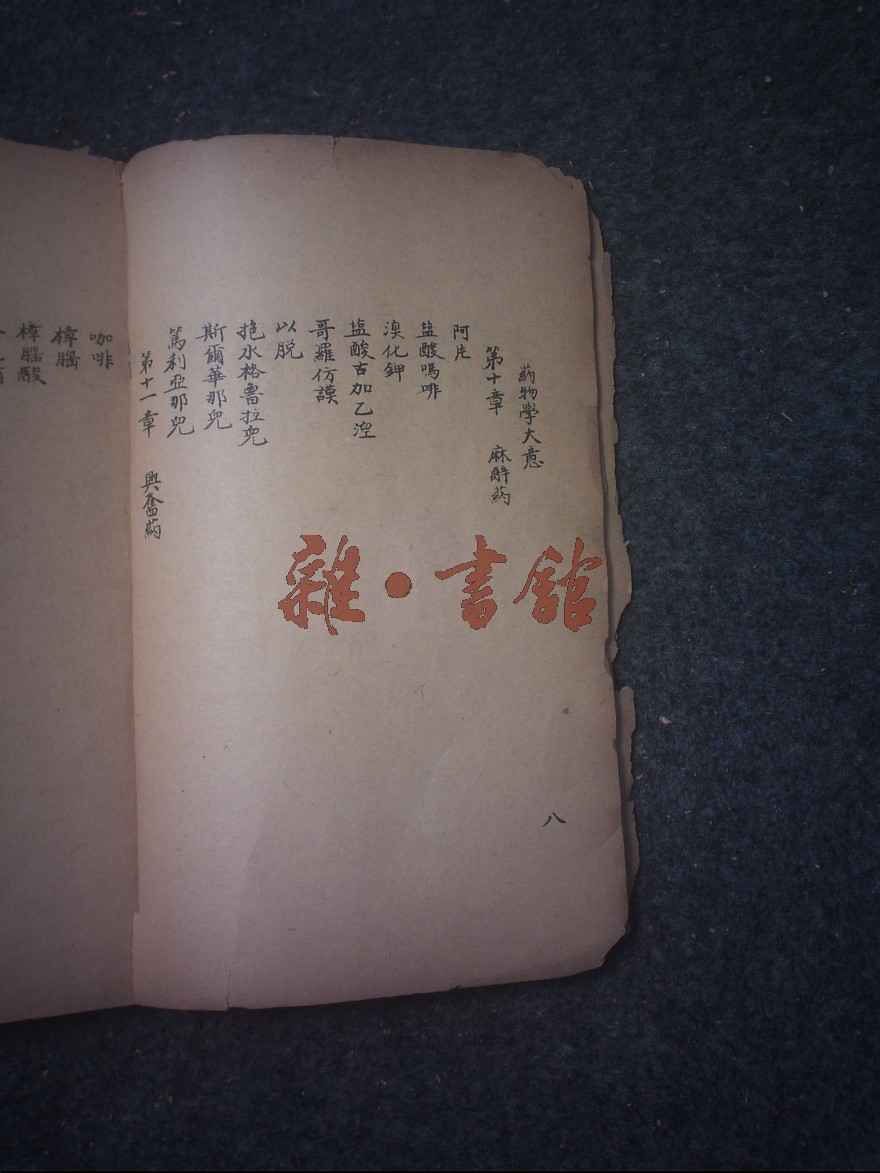 药物學大意
第十章 麻醉药
阿片
盐酸嗎啡
溴化鉀
盐酸古加乙涅
哥羅仿謨
以脱
抱水格魯拉児
斯爾華那児
篤利亞那児
第十一章 興奮药
咖啡
樟腦
樟腦酸
八
雜·書館